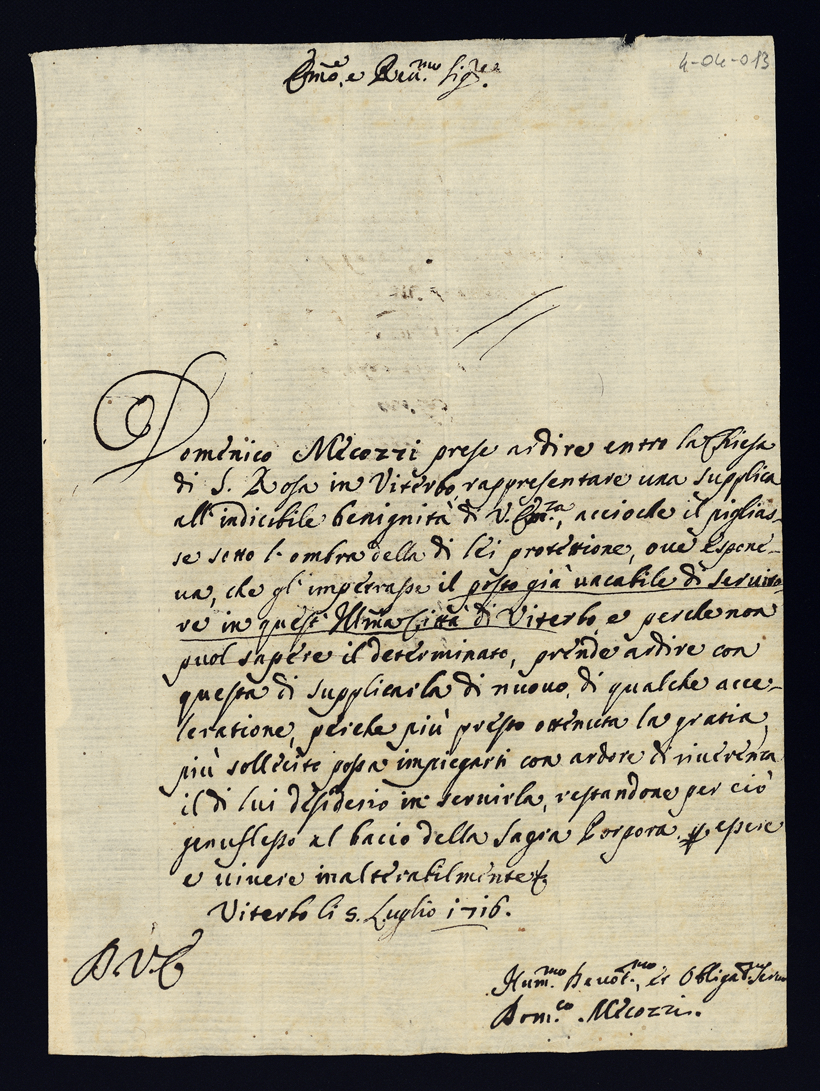 4-04-013
Em̃o, e Reu.mo Sig.re
Domenico Mecozzi prese ardire entro la Chiesa
di S. Rosa in Viterbo, rappresentare una supplica
all'indicibile benignità di V. Em.za, acciochè il piglias-
se sotto l'ombra della di lei protettione, oue espone-
ua, che gl'impetrasse il posto già uacabile di seruito-
re in quest'Ill̃ma Città di Viterbo, e perche non
puol sapere il determinato, prende ardire con
questa di supplicarla di nuouo, di qualche acce-
leratione, perche più presto ottenuta la gratia,
più sollecite possa impiegarsi con ardore di riuerenza
il di lui desiderio in seruirla, restandone per ciò
genuflesso al bacio della Sagra Porpora, essere
e uiuere inalterabilmente
Viterbo li 5. Luglio 1716.
D.V.E
Hum.mo Deuot.mo, et Obligat.mo Seruo
Dom.co Mecozzi.